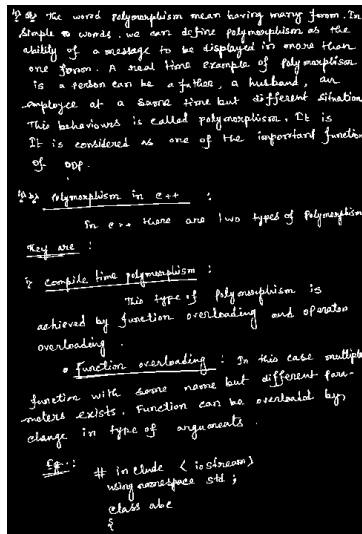 1) a) The word polymorphism mean having many form. In
simple words, we can define polymorphism as the
ability of a message to be displayed in more than
one form. A real time example of polymorphism
is a person can be a father, a husband, an
employee at a same time but different situation
This behaviours is called polymorphism. It is
It is considered as one of the important function
of oop.
1) b) Polymorphism in c++ :
In c++ there are two types of polymorphism
They are :
i) compile time polymorphism :
This type of polymorphism is
achieved by function overloading and operator
overloading.
• Function overloading : In this case multiple
function with same name but different para-
meters exists. Function can be overloaded by,
change in type of arguments.
Eg. :
# include < iostream>
using namespace std ;
class abc
{